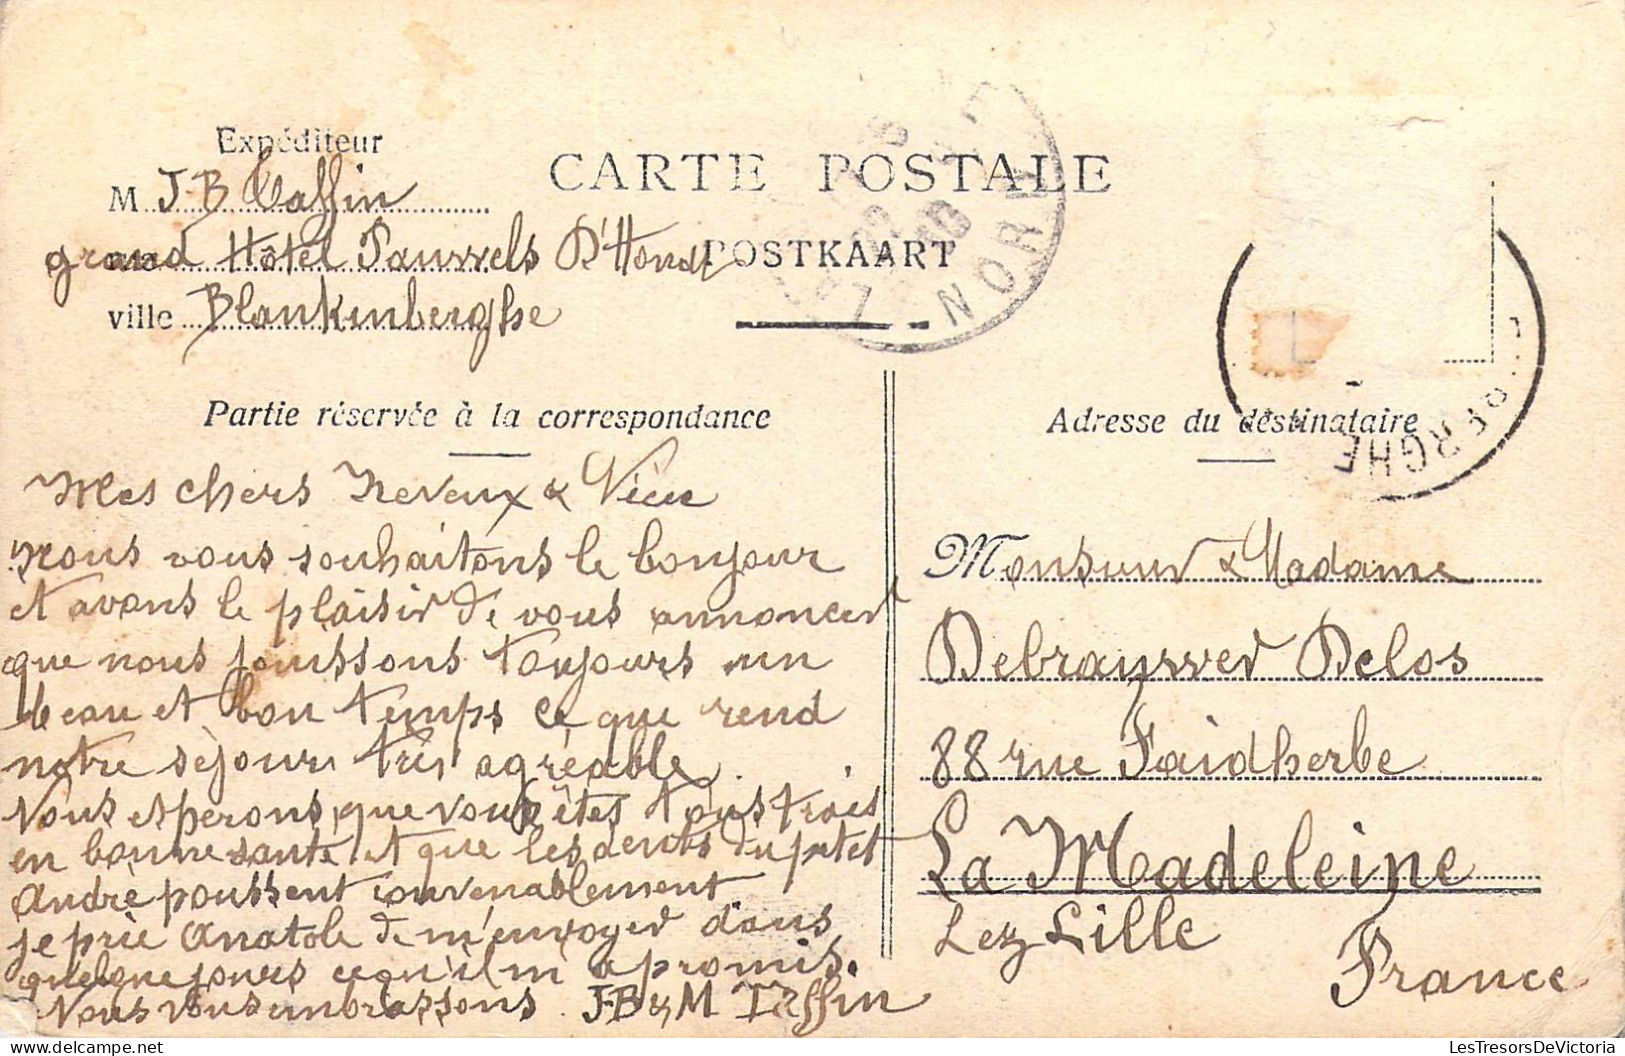 Expéditeur
M J-B Taffin
grand Hôtel Pauwels D'Hondt
ville Blankenberghe
CARTE POSTALE
POSTKAART
NORD
BERGHE
Partie réservée à la correspondance
Mes chers Neveux & Nièce
Nous vous souhaitons le bonjour
et avons le plaisir de vous annoncer
que nous jouissons toujours un
beau et bon temps ce que rend
notre séjour très agréable.
Nous espérons que vous êtes tous trois
en bonne santé et que les dents du petit
André poussent convenablement
je prie Anatole de m'envoyer dans
quelque jours ce qu'il m'a promis.
Nous vous embrassons J-B & M Taffin
Adresse du destinataire
Monsieur & Madame
Debruywer Delos
88 rue Faidherbe
La Madeleine
Lez Lille
France
LesTresorsDeVictoria